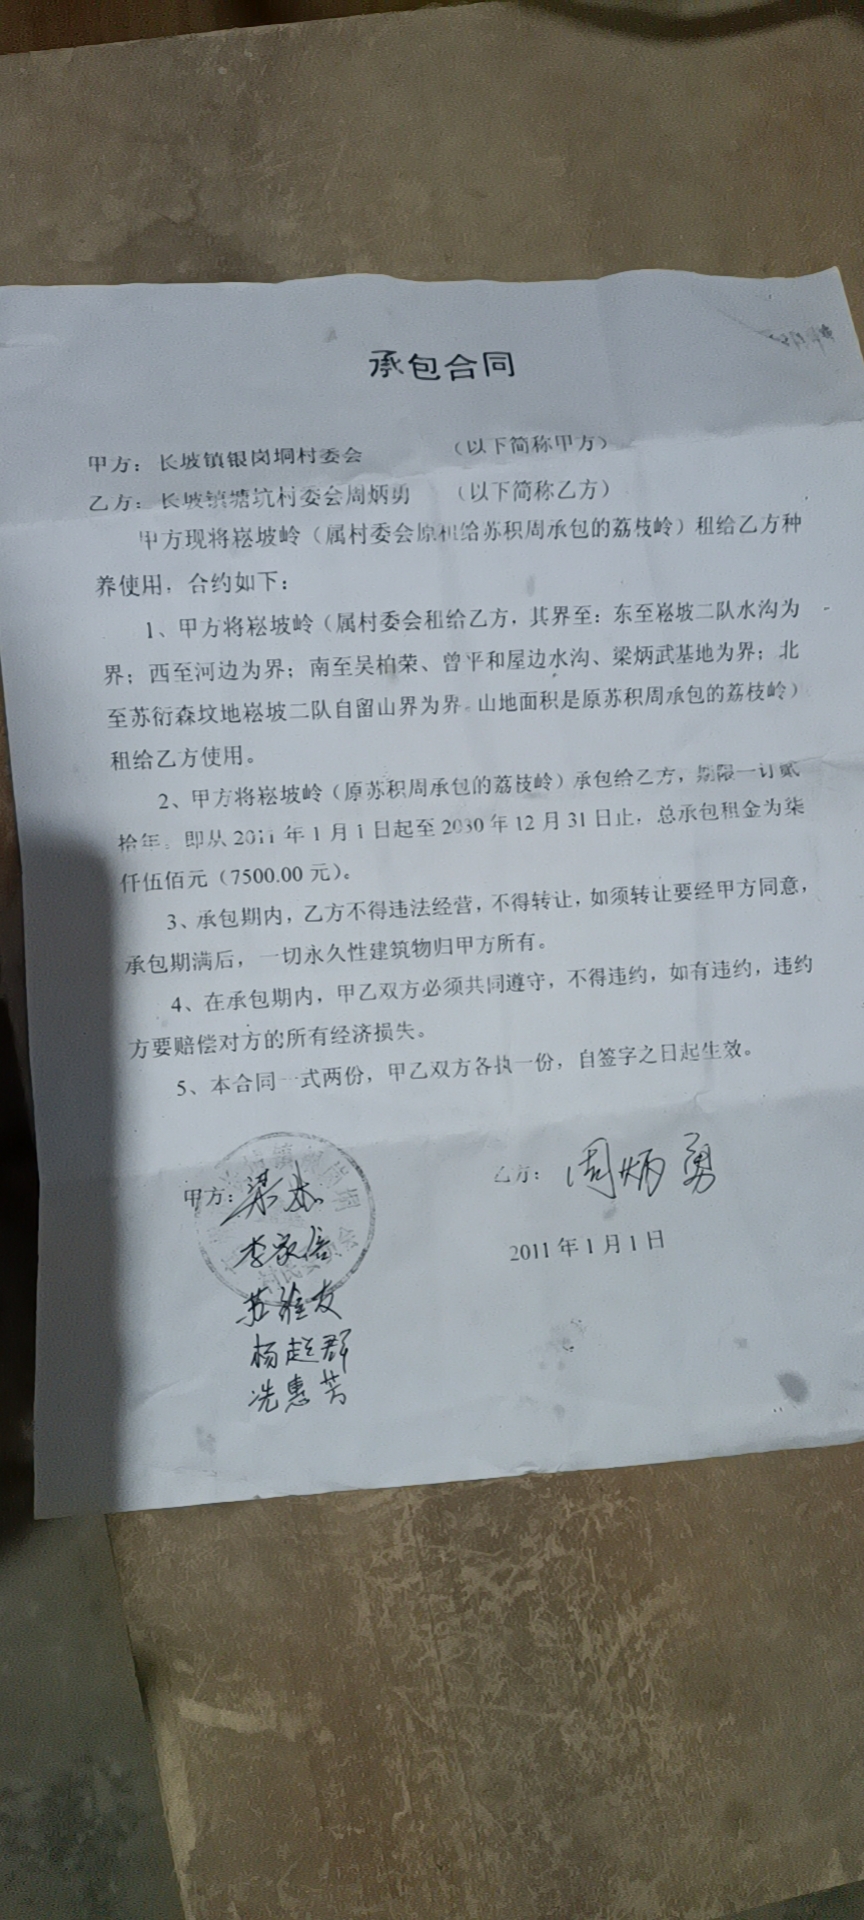 承包合同
甲方：长坡镇银岗垌村委会 （以下简称甲方）
乙方：长坡镇塘坑村委会周炳勇 （以下简称乙方）
甲方现将崧坡岭（属村委会原租给苏积周承包的荔枝岭）租给乙方种
养使用，合约如下：
1、甲方将崧坡岭（属村委会租给乙方，其界至：东至崧坡二队水沟为
界；西至河边为界；南至吴柏荣、曾平和屋边水沟、梁炳武基地为界；北
至苏衍森坟地崧坡二队自留山界为界。山地面积是原苏积周承包的荔枝岭）
租给乙方使用。
2、甲方将崧坡岭（原苏积周承包的荔枝岭）承包给乙方，期限一订贰
拾年。即从2011年1月1日起至2030年12月31日止，总承包租金为柒
仟伍佰元（7500.00元）。
3、承包期内，乙方不得违法经营，不得转让，如须转让要经甲方同意，
承包期满后，一切永久性建筑物归甲方所有。
4、在承包期内，甲乙双方必须共同遵守，不得违约，如有违约，违约
方要赔偿对方的所有经济损失。
5、本合同一式两份，甲乙双方各执一份，自签字之日起生效。
甲方：梁杰 乙方：周炳勇
李家信
2011年1月1日
苏 友
杨超群
冼惠芳